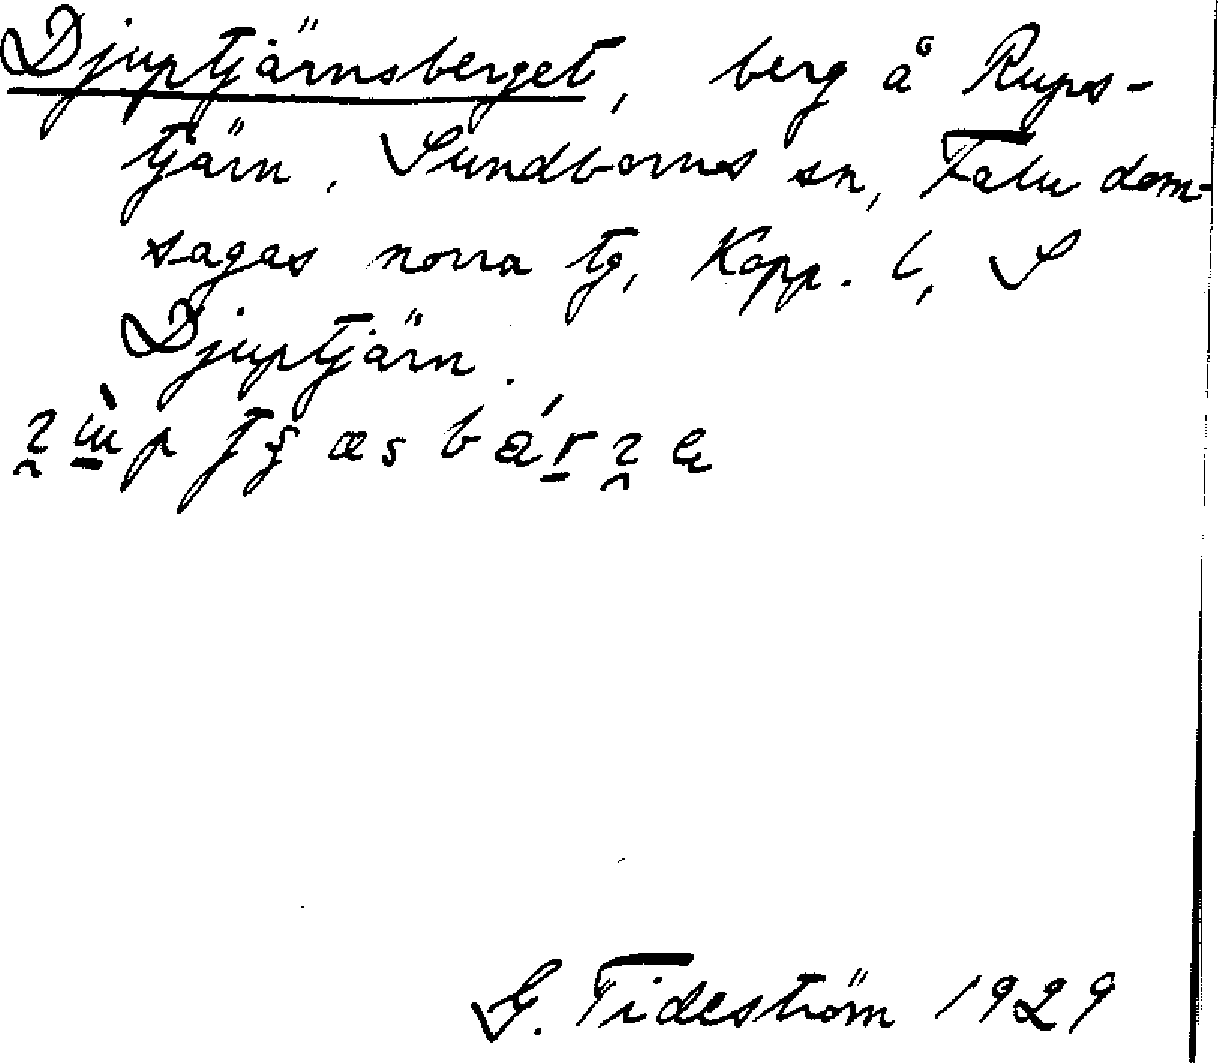 Djuptjärnsberget, berg å Rups-
tjärn. Sundborns sn, Falu dom-
sagas norra tg, Kopp. l, S
Djuptjärn.
G. Tideström 1929